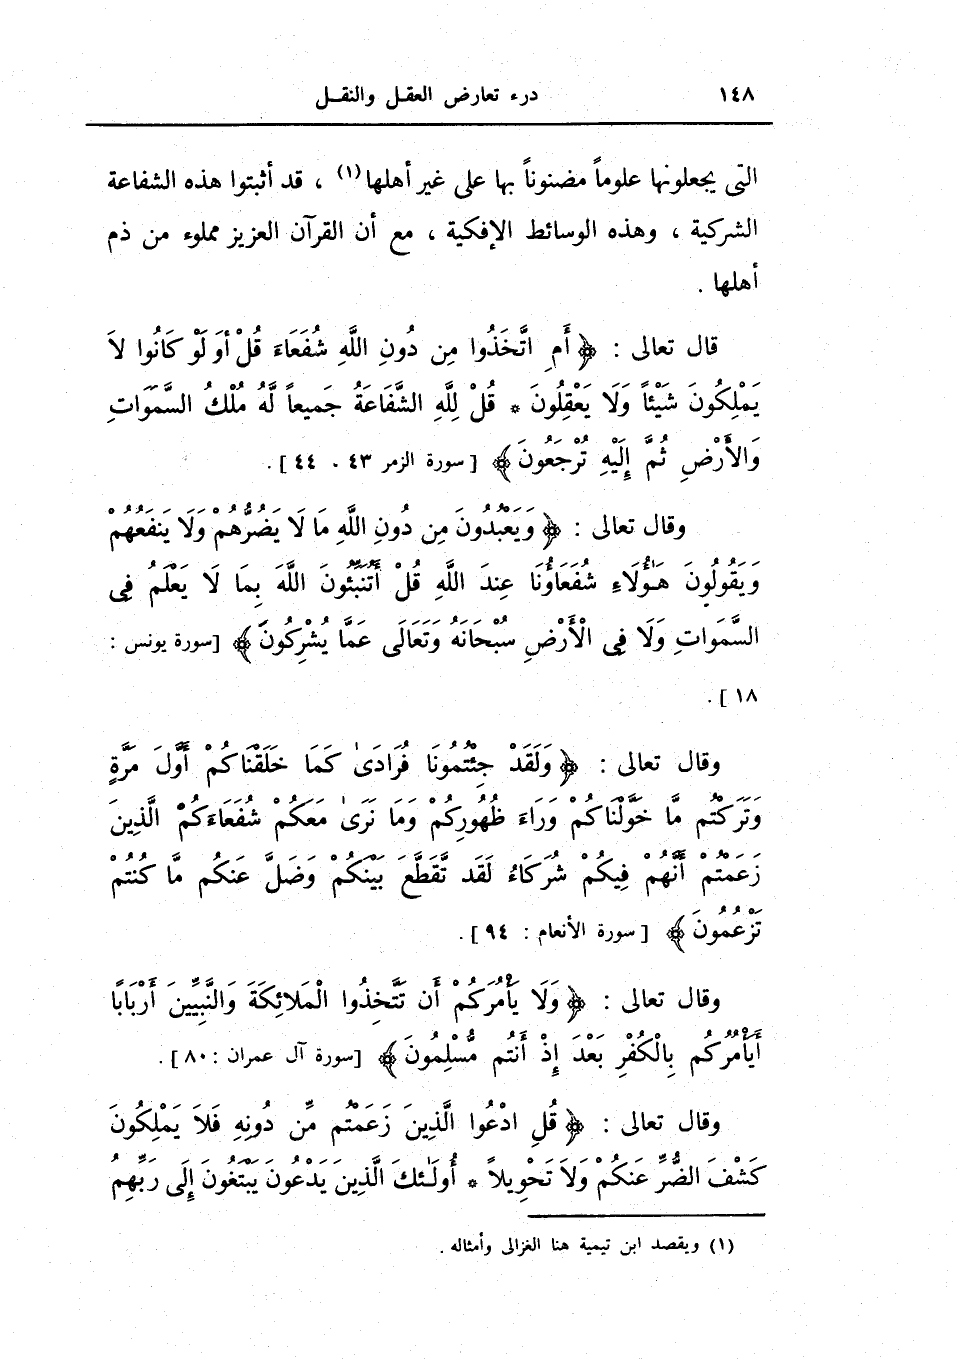 ١٤٨ درء تعارض العقـل والنقـل
التى يجعلونها علوماً مضنوناً بها على غير أهلها(١) ، قد أثبتوا هذه الشفاعة
الشركية ، وهذه الوسائط الإفكية ، مع أن القرآن العزيز مملوء من ذم
أهلها .
قال تعالى : ﴿أَمِ اتَّخَذُوا مِن دُونِ اللَّهِ شُفَعَاءَ قُلْ أَوَ لَوْ كَانُوا لاَ
يَمْلِكُونَ شَيْئاً وَلَا يَعْقِلُونَ * قُلْ لِلَّهِ الشَّفَاعَةُ جَمِيعاً لَّهُ مُلْكُ السَّمَوَاتِ
وَالأَرْضِ ثُمَّ إِلَيْهِ تُرْجَعُونَ﴾ [ سورة الزمر ٤٣ ، ٤٤ ].
وقال تعالى : ﴿وَيَعْبُدُونَ مِن دُونِ اللَّهِ مَا لَا يَضُرُّهُمْ وَلَا يَنفَعُهُمْ
وَيَقُولُونَ هَـٰؤُلَاءِ شُفَعَاؤُنَا عِندَ اللَّهِ قُلْ أَتُنَبِّئُونَ اللَّهَ بِمَا لَا يَعْلَمُ فِى
السَّمَوَاتِ وَلَا فِى الْأَرْضِ سُبْحَانَهُ وَتَعَالَى عَمَّا يُشْرِكُونَ﴾ [سورة يونس :
١٨ ] .
وقال تعالى : ﴿وَلَقَدْ جِئْتُمُونَا فُرَادَىٰ كَمَا خَلَقْنَاكُمْ أَوَّلَ مَرَّةٍ
وَتَرَكْتُم مَّا خَوَّلْنَاكُمْ وَرَاءَ ظُهُورِكُمْ وَمَا نَرَىٰ مَعَكُمْ شُفَعَاءَكُمْ الَّذِينَ
زَعَمْتُمْ أَنَّهُمْ فِيكُمْ شُرَكَاءُ لَقَد تَّقَطَّعَ بَيْنَكُمْ وَضَلَّ عَنكُم مَّا كُنتُمْ
تَزْعُمُونَ﴾ [ سورة الأنعام : ٩٤ ] .
وقال تعالى : ﴿وَلَا يَأْمُرَكُمْ أَن تَتَّخِذُوا الْمَلَائِكَةَ وَالنَّبِيِّينَ أَرْبَابًا
أَيَأْمُرُكُم بِالْكُفْرِ بَعْدَ إِذْ أَنتُم مُّسْلِمُونَ﴾ [سورة آل عمران : ٨٠ ] .
وقال تعالى : ﴿قُلِ ادْعُوا الَّذِينَ زَعَمْتُم مِّن دُونِهِ فَلاَ يَمْلِكُونَ
كَشْفَ الضُّرِّ عَنكُمْ وَلاَ تَحْوِيلاً * أُولَـٰئِكَ الَّذِينَ يَدْعُونَ يَبْتَغُونَ إِلَى رَبِّهِمُ
(١) ويقصد ابن تيمية هنا الغزالى وأمثاله .